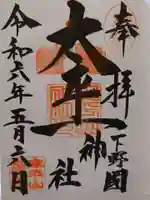 奉拝
下野國
太平山
神社
令和六年五月六日